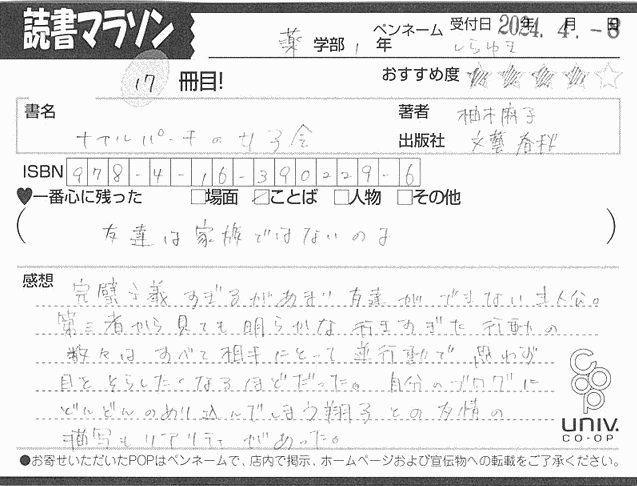 読書マラソン
薬 学部 1 年
ペンネーム しらゆき
受付日 2024年 4.月 -8日
17 冊目!
おすすめ度 ★★★★☆
書名 ナイルパーチの女子会
著者 柚木麻子
出版社 文藝春秋
ISBN 978-4-16-390229-6
♥一番心に残った □場面 ☑ことば □人物 □その他
( 友達は家族ではないのよ )
感想 完璧主義すぎるがあまり友達ができない主人公。
第三者から見ても明らかな行きすぎた行動の
数々はすべて相手にとって 行動で思わず
目をそらしたくなるほどだった。自分のブログに
どんどんのめり込んでしまう翔子との友情の
描写もリアリティがあった。
coop
UNIV.
CO-OP
●お寄せいただいたPOPはペンネームで、店内で掲示、ホームページおよび宣伝物への転載をご了承ください。